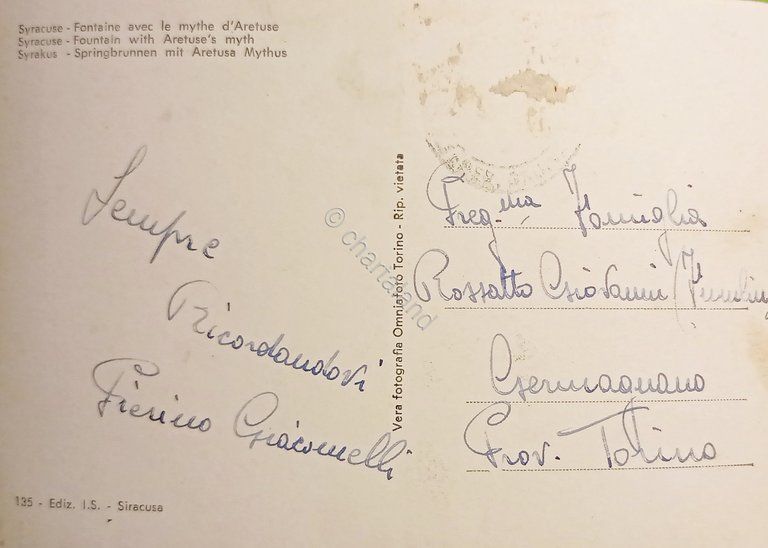 Syracuse - Fontaine avec le mythe d'Aretuse
Syracuse - Fountain with Aretuse's myth
Syrakus - Springbrunnen mit Aretusa Mythus
Sempre
Ricordandovi
Pierino Giacomelli
135 - Ediz. I.S. - Siracusa
Vera fotografia Omniafoto Torino - Rip. vietata
Preg.ma Famiglia
Rossatto Giovanni
Germagnano
Prov. Torino
© chartaland